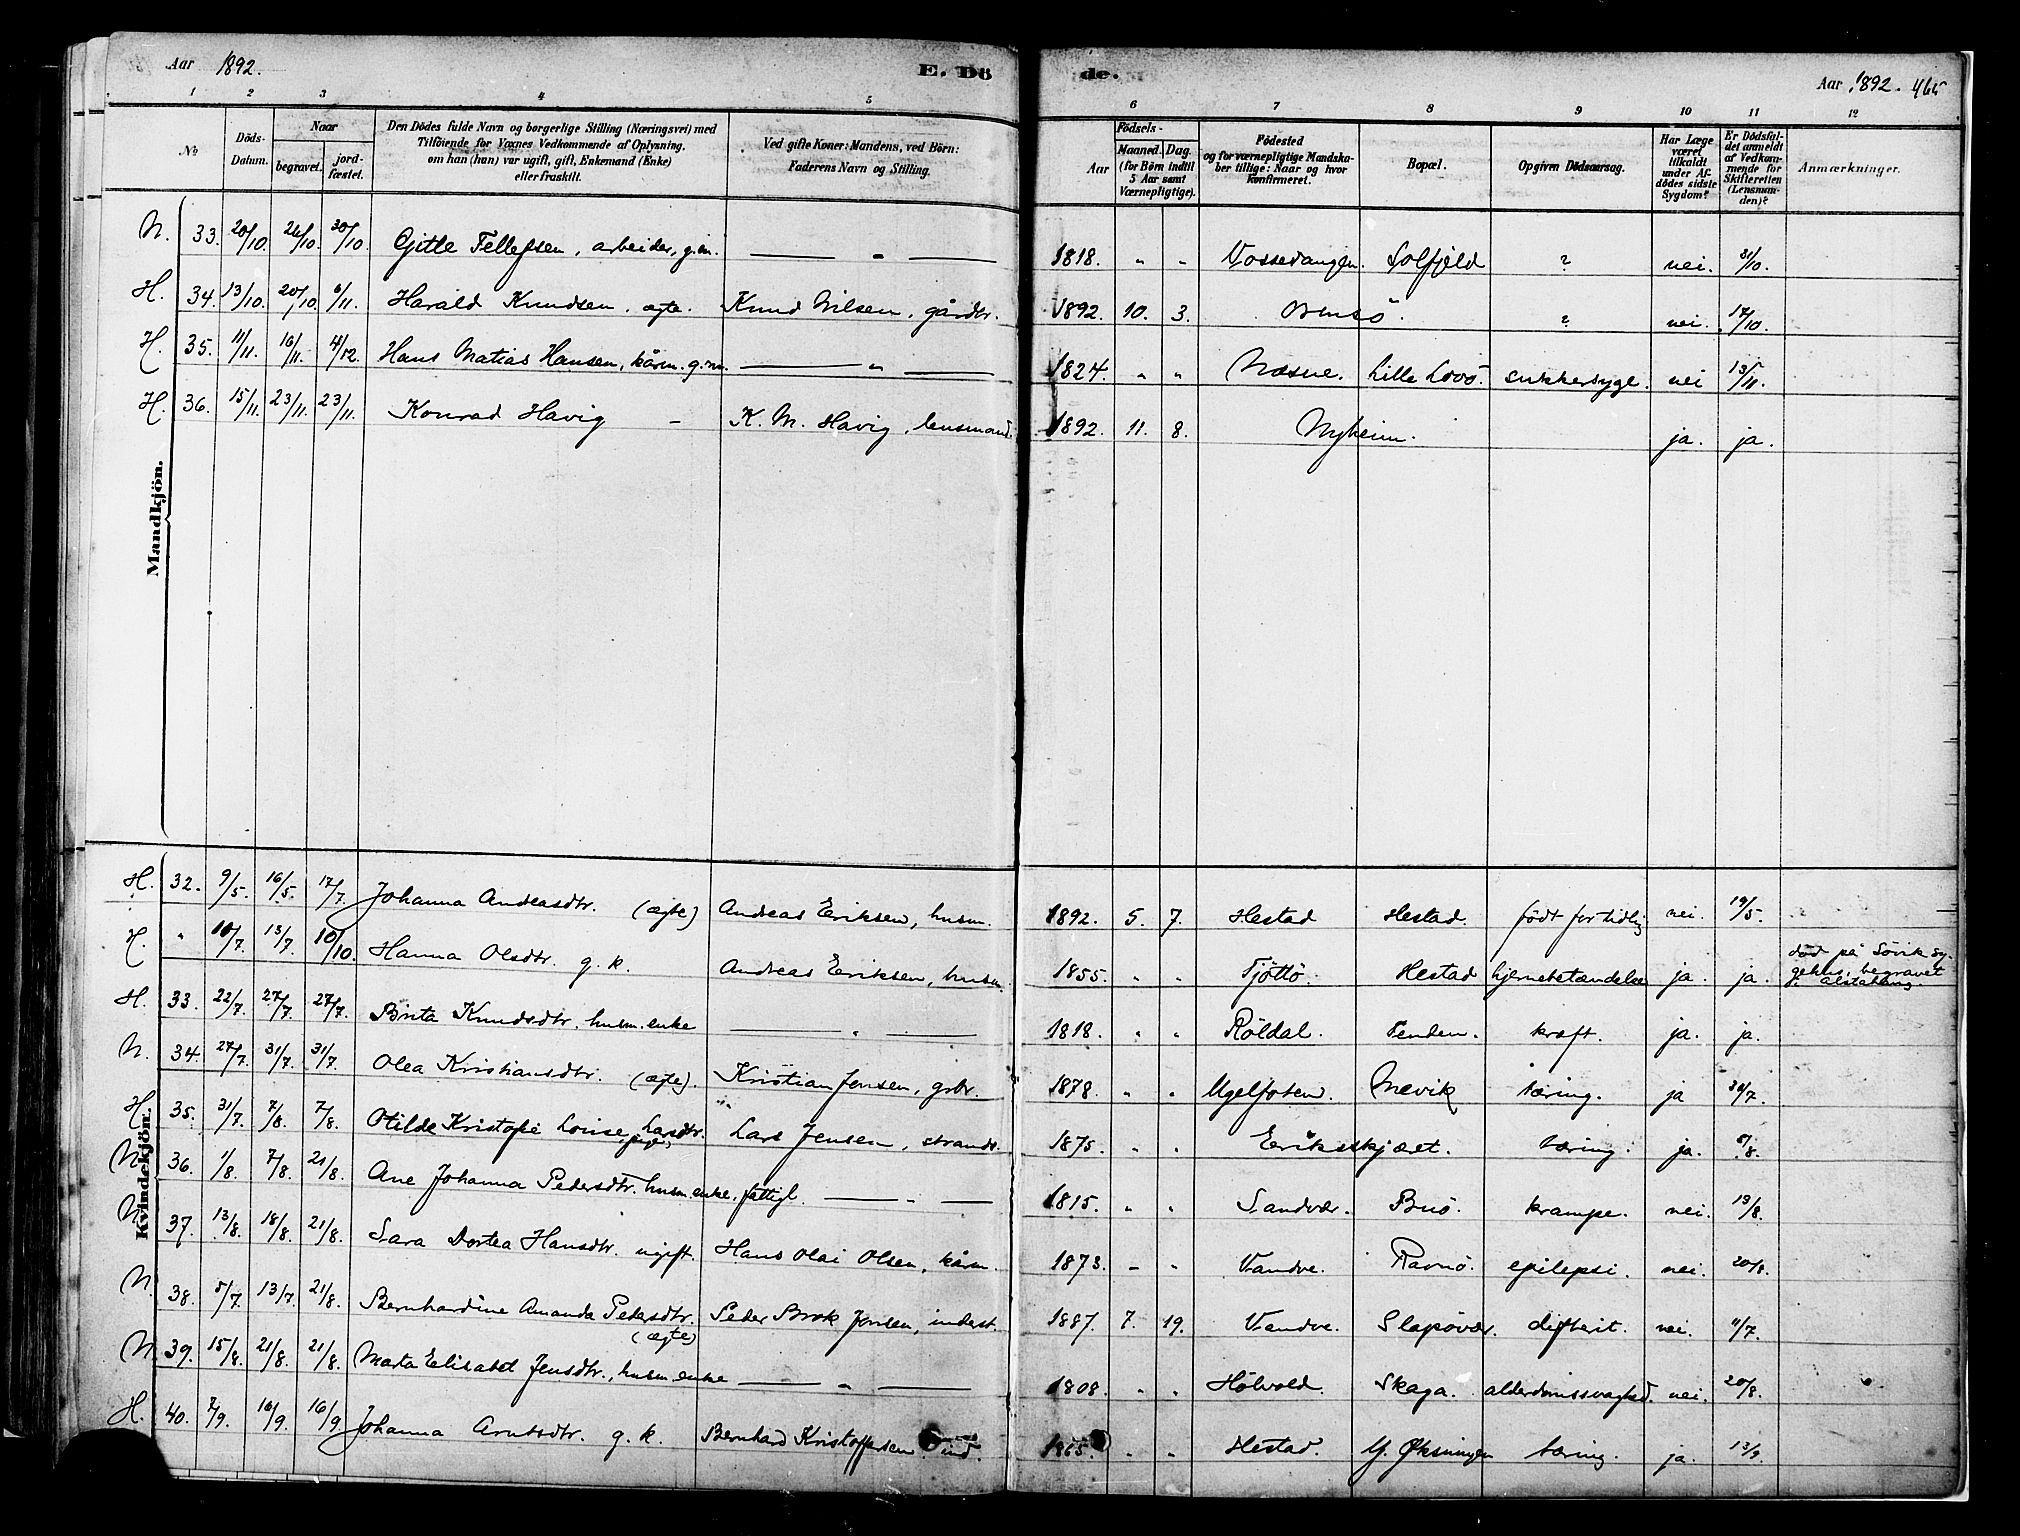 Aar 1892.
E. Dö
de.
Aar 1892. 465
1 2 3 4 5 6 7 8 9 10 11 12
No
Döds-Datum.
Naar
begravet.
jord-fæstet.
Den Dödes fulde Navn og borgerlige Stilling (Næringsvei) med
Tilföiende for Voxnes Vedkommende af Oplysning.
om han (hun) var ugift, gift, Enkemand (Enke)
eller fraskilt.
Ved gifte Koner: Mandens, ved Börn:
Faderens Navn og Stilling.
Födsels-
Aar
Maaned. Dag.
(for Börn indtil
5 Aar samt
Værnepligtige).
Födested
og for værnepligtige Mandska-
ber tillige: Naar og hvor
konfirmeret.
Bopæl.
Opgiven Dödsaarsag.
Har Læge
været
tilkaldt
under Af-
dödes sidste
Sygdom?
Er Dödsfal-
det anmeldt
af Vedkom-
mende for
Skifteretten
(Lensman-
den)?
Anmærkninger.
Mandkjön.
N. 33. 20/10. 26/10. 30/10. Gitle Tellefsen, arbeider, g.m. — " — 1818. " " Vossevangen. Solfjeld ? nei. 31/10.
H. 34. 13/10. 20/10. 6/11. Harald Knudsen. ægte. Knud Nilsen, gårdbr. 1892. 10. 3. ? nei. 17/10.
H. 35. 11/11. 16/11. 4/12. Hans Matias Hansen, kårm. g.m. — " — 1824. " " Næsne. Lille Lovö. sukkersyge. nei 13/11.
H. 36. 15/11. 23/11. 23/11. Konrad Havig — K. M. Havig, lensmand. 1892. 11. 8. Nyheim. ja. ja.
Kvindekjön.
H. 32. 9/5. 16/5. 17/7. Johanna Andreasdtr. (ægte) Andreas Eriksen, husm. 1892. 5. 7. Hestad Hestad. født for tidlig nei. 19/5.
H. " 10/7. 13/7. 10/10. Hanna Olsdtr. g. k. Andreas Eriksen, husm. 1855. " " Tjöttö. Hestad hjernebetændelse ja. ja. død på Søvik sy-
gehus, begravet
p. Alstahaug.
H. 33. 22/7. 27/7. 27/7. Brita Knudsdtr. husm. enke — " — 1818. " " Röldal. Tenden. kræft. ja. ja.
N. 34. 27/7. 31/7. 31/7. Olea Kristiansdtr. (ægte). Kristian Jensen, grbr. 1878. " " Ugelfoten. Nævik tæring. ja 30/7.
H. 35. 31/7. 7/8. 7/8. Otilde Kristofie Louise Larsdtr. pige, Lars Jensen, strands. 1875. " " Eriksskjæret. tæring. ja.
N. 36. 1/8. 7/8. 21/8. Ane Johanna Pedersdtr. husm. enke, fattigl. — " — 1815. " " Sandvær. Buö. krampe. nei. 13/8.
N. 37. 13/8. 18/8. 21/8. Sara Dortea Hansdtr. ugift. Hans Olai Olsen, kårm. 1873. " " Vandve. Ravnö. epilepsi. nei. 20/8.
N. 38. 5/7. 13/7. 21/8. Bernhardine Amanda Pedersdtr. (ægte) Peder Brok Jensen, inderst. 1887. 7. 19. Vandve. Slapövær. difterit. nei. 11/7.
N. 39. 15/8. 21/8. 21/8. Marta Elisabet Jensdtr., husm. enke — " — 1808. " " Hölvold. Skaga. alderdomssvaghed. nei. 20/8.
H. 40. 7/9. 16/9. 16/9. Johanna Arntsdtr. g. k. Bernhard Kristoffersen ind. 1865. " " Hestad. Y. Øksningen tæring. ja. 13/9.